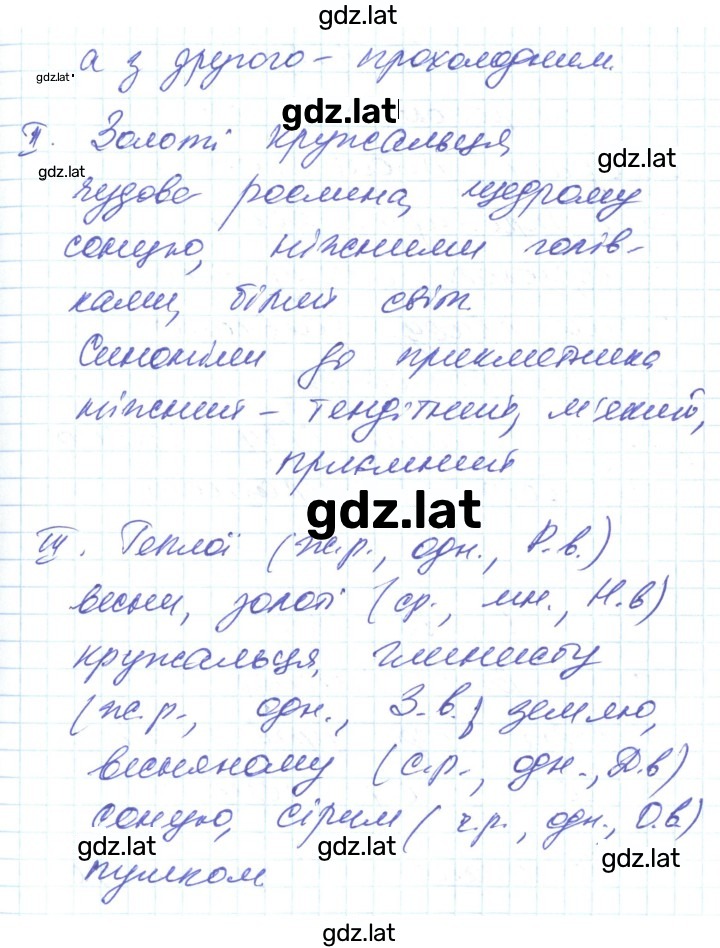 gdz.lat
а з другого – прохолодним.
gdz.lat
gdz.lat
ІІ. Золоті кружальця,
gdz.lat
gdz.lat
чудова рослина, щедрому
сонцю, ніжними голів-
ками, білий світ.
Синоніми до прикметника
ніжний – тендітний, м'який,
приємний
gdz.lat
ІІІ. Теплої (ж.р., одн., Р.в.)
весни, золоті (ср., мн., Н.в)
кружальця, глинисту
(ж.р., одн., З.в.) землю,
весняному (с.р., одн., Д.в)
сонцю, сірим (ч.р., одн., О.в.)
gdz.lat gdz.lat gdz.lat
пушком.
gdz.lat